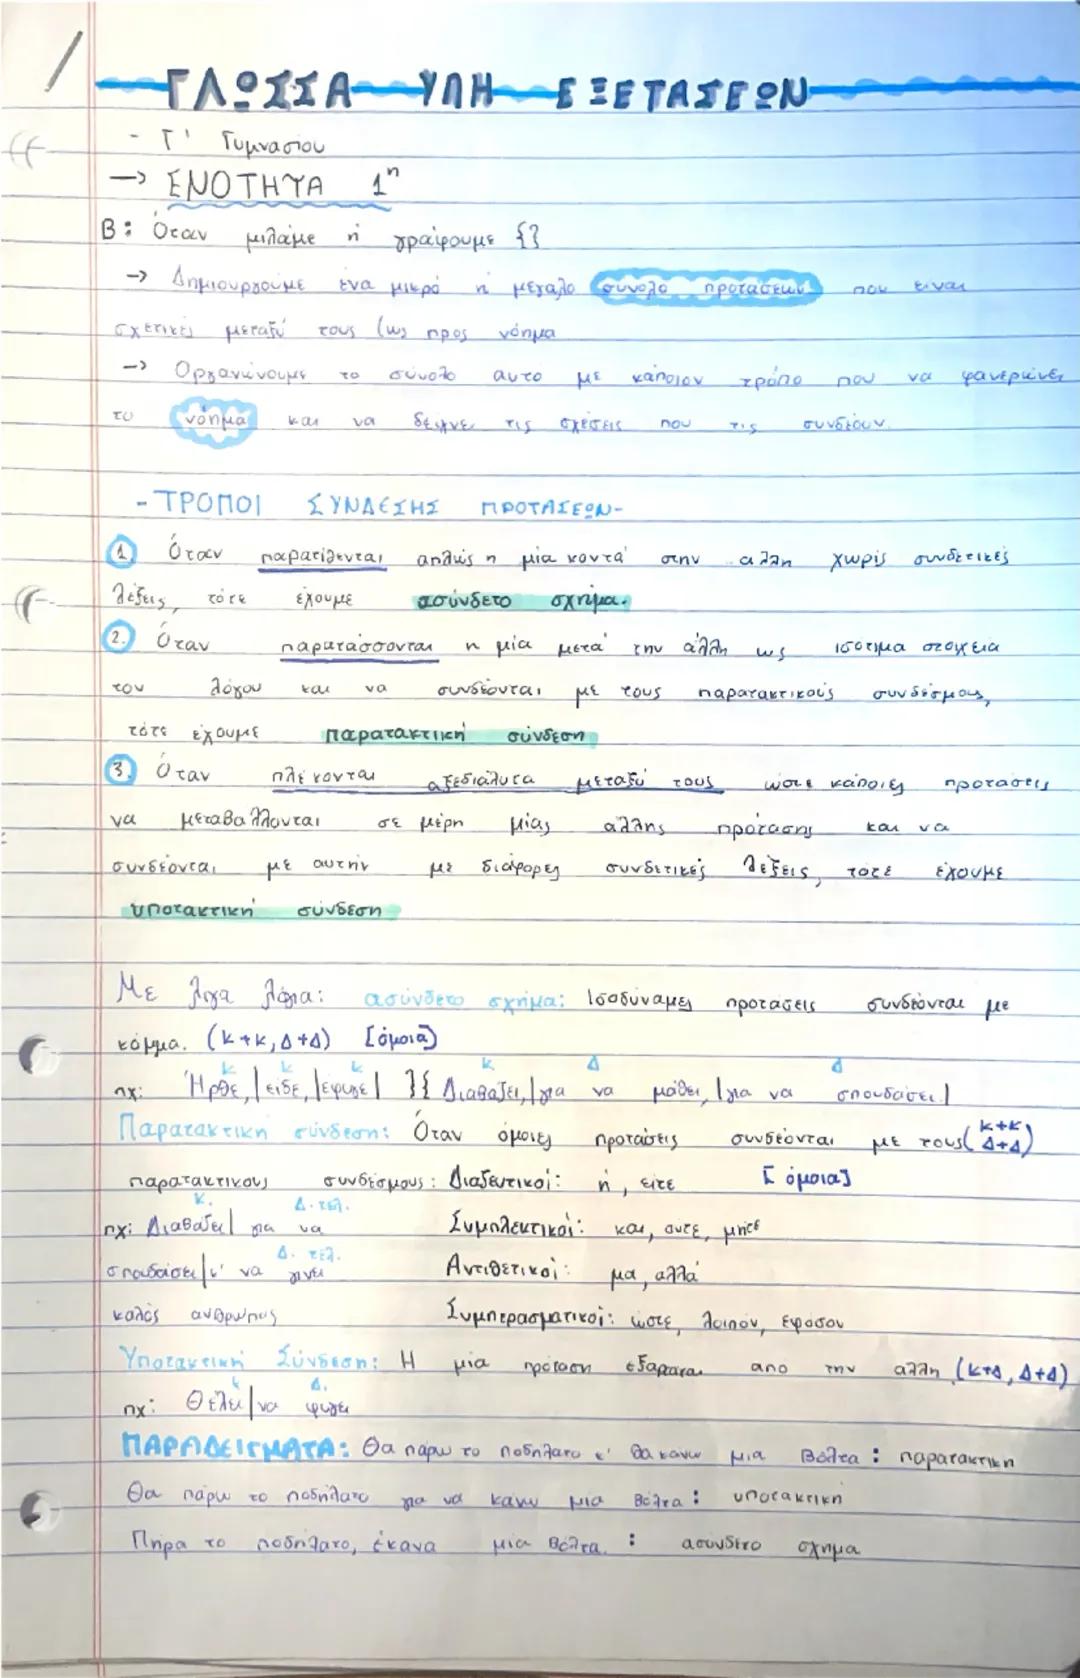 ΓΛΩΣΣΑ ΥΛΗ ΕΞΕΤΑΣΕΩΝ
- Γ' Γυμνασίου
→ ΕΝΟΤΗΤΑ 1η
Β: Όταν μιλάμε ή γράφουμε {}
→ Δημιουργούμε ένα μικρό ή μεγάλο σύνολο προτάσεων που είναι
σχετικές μεταξύ τους (ως προς νόημα
→ Οργανώνουμε το σύνολο αυτό με κάποιον τρόπο που να φανερώνει
το νόημα και να δείχνει τις σχέσεις που τις συνδέουν.
- ΤΡΟΠΟΙ ΣΥΝΔΕΣΗΣ ΠΡΟΤΑΣΕΩΝ-
1. Όταν παρατίθενται απλώς η μία κοντά στην άλλη χωρίς συνδετικές
λέξεις, τότε έχουμε ασύνδετο σχήμα.
2. Όταν παρατάσσονται η μία μετά την άλλη ως ισότιμα στοιχεία
του λόγου και να συνδέονται με τους παρατακτικούς συνδέσμους,
τότε έχουμε παρατακτική σύνδεση
3. Όταν πλέκονται αξεδιάλυτα μεταξύ τους ώστε κάποιες προτάσεις
να μεταβάλλονται σε μέρη μίας άλλης πρότασης και να
συνδέονται με αυτήν με διάφορες συνδετικές λέξεις, τότε έχουμε
υποτακτική σύνδεση
Με λίγα λόγια: ασύνδετο σχήμα: Ισοδύναμες προτάσεις συνδέονται με
κόμμα. (κ+κ, Δ+Δ) [όμοια]
κ κ κ κ Δ Δ
πχ: Ήρθε, | είδε, | έφυγε | }{ Διαβάζει, | για να μάθει, | για να σπουδάσει |
Παρατακτική σύνδεση: Όταν όμοιες προτάσεις συνδέονται με τους (κ+κ, Δ+Δ)
παρατακτικούς συνδέσμους: Διαζευτικοί: ή, είτε [όμοια]
κ. Δ. τελ.
πχ: Διαβάζει | για να Συμπλεκτικοί: και, ούτε, μήτε
Δ. τελ.
σπουδάσει | κ' να γίνει Αντιθετικοί: μα, αλλά
καλός άνθρωπος Συμπερασματικοί: ώστε, λοιπόν, εφόσον
Υποτακτική Σύνδεση: Η μία πρόταση εξαρτάται από την άλλη (κ+Δ, Δ+Δ)
κ Δ.
πχ: Θέλει | να φύγει
ΠΑΡΑΔΕΙΓΜΑΤΑ: Θα πάρω το ποδήλατο κ' θα κάνω μια βόλτα: παρατακτική
Θα πάρω το ποδήλατο για να κάνω μια βόλτα: υποτακτική
Πήρα το ποδήλατο, έκανα μία βόλτα. : ασύνδετο σχήμα